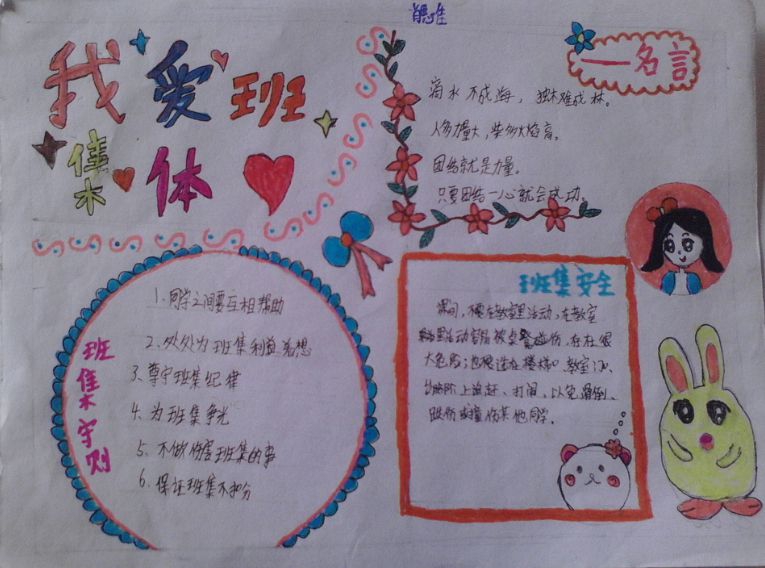 我爱班
集体
名言
滴水不成海，独木难成林。
人多力量大，柴多火焰高。
团结就是力量。
只要团结一心就会成功。
班集守则
1.同学之间要互相帮助
2.处处为班集利益着想
3.尊守班集纪律
4.为班集争光
5.不做伤害班集的事
6.保证班集不扣分
班集安全
课间，不要在教室里活动，在教室
里活动容易被桌凳碰伤，存在很
大危险；也不要在楼梯口、教室门口、
台阶上追赶、打闹，以免滑倒、
跌伤或撞伤其他同学。